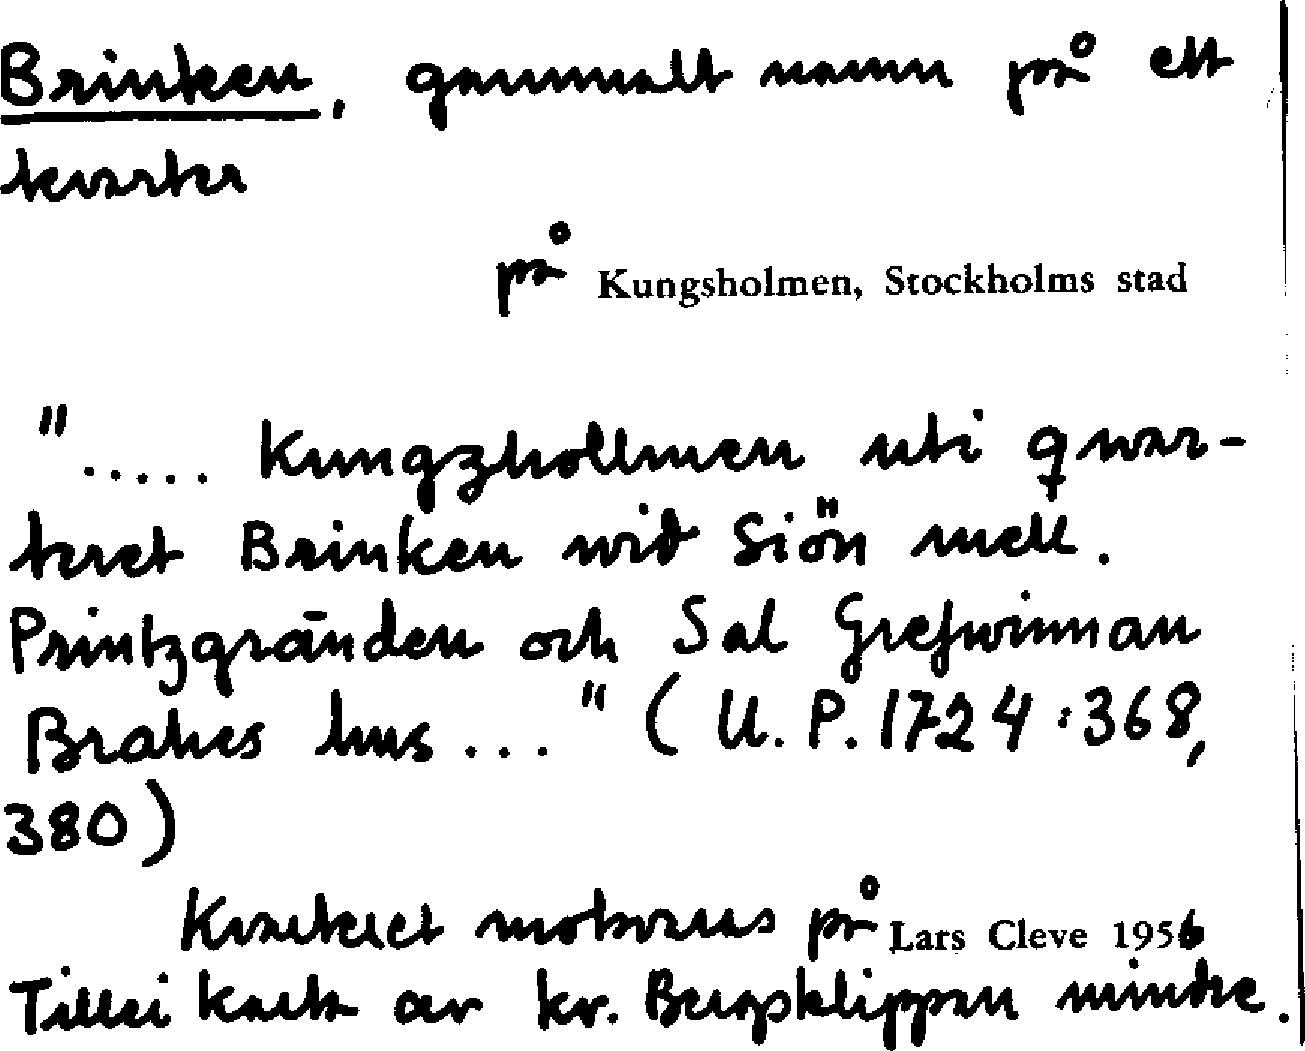 Brinken, gammalt namn på ett
kvarter
på Kungsholmen, Stockholms stad
"..... Kungzhollmen uti qwar-
teret Brinken wid Siön mell.
Printzgränden och Sal Grefwinnan
Brahes hus ..." (U.P. 1724:368,
380)
Kvarteret motsvaras på Lars Cleve 1956
Tillæi karta av kv. Bergsklippan mindre.